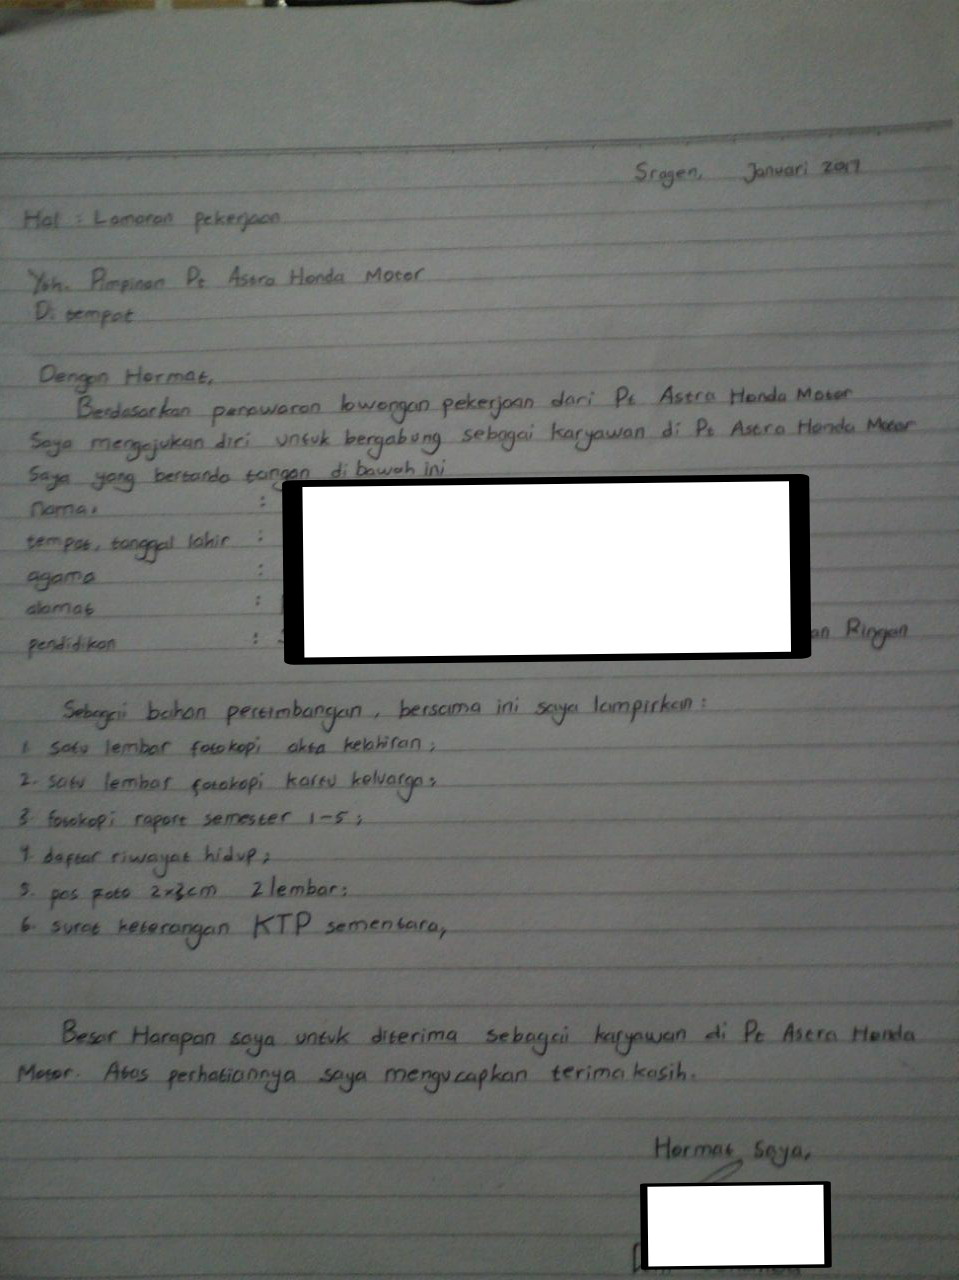 Sragen, Januari 2017
Hal : Lamaran pekerjaan
Yth. Pimpinan Pt Astra Honda Motor
Di tempat
Dengan Hormat,
Berdasarkan penawaran lowongan pekerjaan dari Pt Astra Honda Motor
Saya mengajukan diri untuk bergabung sebagai karyawan di Pt Astra Honda Motor
Saya yang bertanda tangan di bawah ini
nama :
tempat, tanggal lahir :
agama :
alamat :
pendidikan : an Ringan
Sebagai bahan pertimbangan, bersama ini saya lampirkan :
1. satu lembar fotokopi akta kelahiran;
2. satu lembar fotokopi kartu keluarga;
3. fotokopi raport semester 1-5;
4. daftar riwayat hidup;
5. pas foto 2x3cm 2 lembar;
6. surat keterangan KTP sementara,
Besar Harapan saya untuk diterima sebagai karyawan di Pt Astra Honda
Motor. Atas perhatiannya saya mengucapkan terima kasih.
Hormat Saya,